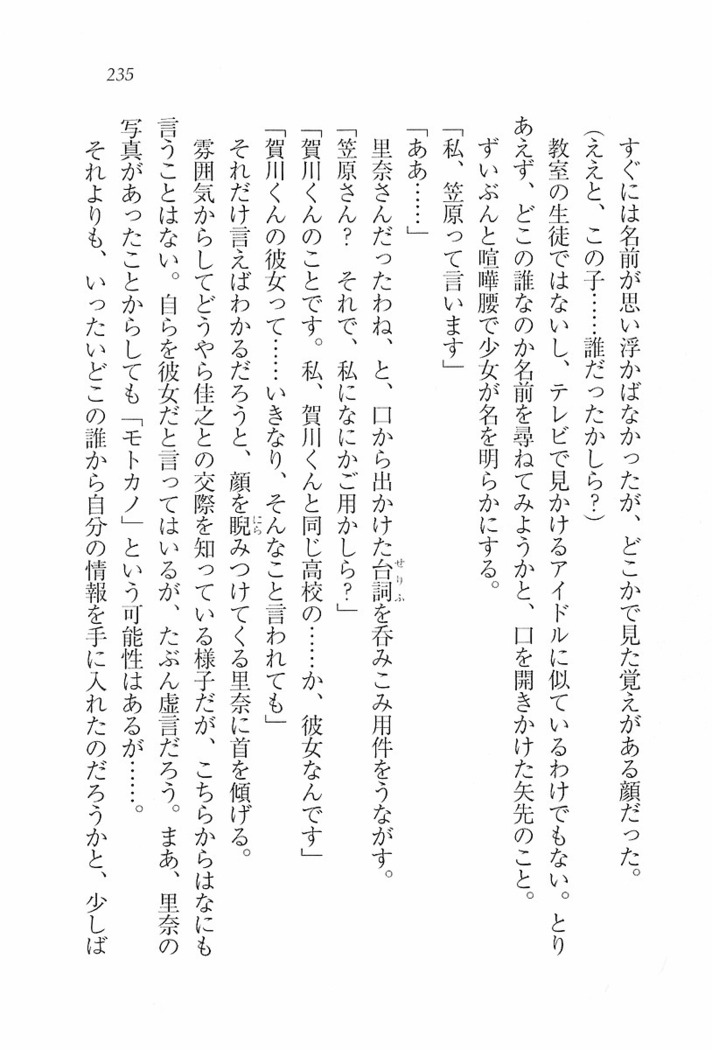 235
すぐには名前が思い浮かばなかったが、どこかで見た覚えがある顔だった。
(ええと、この子……誰だったかしら?)
教室の生徒ではないし、テレビで見かけるアイドルに似ているわけでもない。とり
あえず、どこの誰なのか名前を尋ねてみようかと、口を開きかけた矢先のこと。
ずいぶんと喧嘩腰で少女が名を明らかにする。
「私、笠原って言います」
「ああ……」
里奈さんだったわね、と、口から出かけた台詞を呑みこみ用件をうながす。
「笠原さん? それで、私になにかご用かしら?」
「賀川くんのことです。私、賀川くんと同じ高校の……か、彼女なんです」
「賀川くんの彼女って……いきなり、そんなこと言われても」
それだけ言えばわかるだろうと、顔を睨みつけてくる里奈に首を傾げる。
雰囲気からしてどうやら佳之との交際を知っている様子だが、こちらからはなにも
言うことはない。自らを彼女だと言ってはいるが、たぶん虚言だろう。まあ、里奈の
写真があったことからしても「モトカノ」という可能性はあるが……。
それよりも、いったいどこの誰から自分の情報を手に入れたのだろうかと、少しば